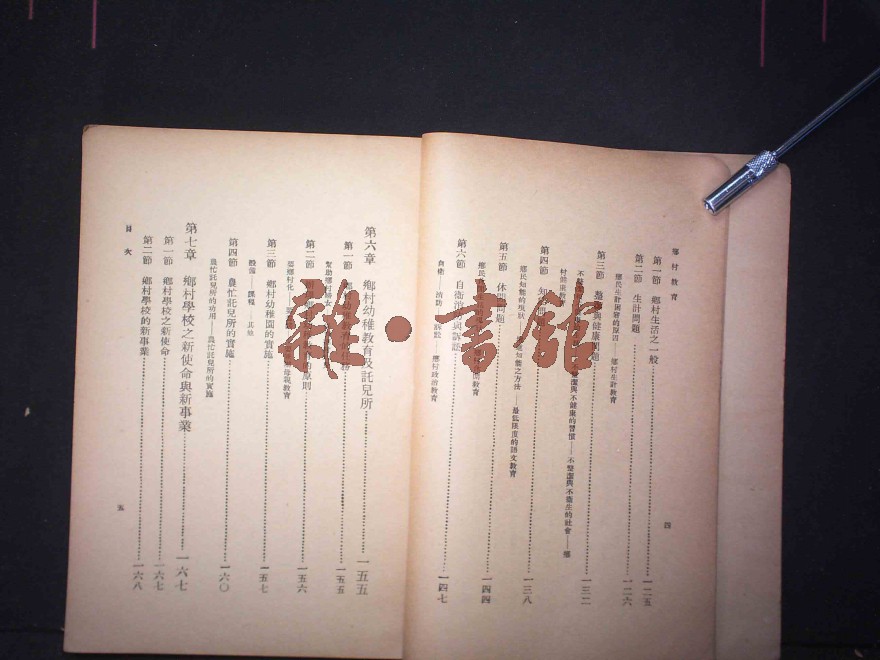 鄉村教育
第一節 鄉村生活之一般……一二五
第二節 生計問題……一二六
鄉民生計困窘的原因——鄉村生計教育
第三節 整 與健康問題……一三二
不整潔與不健康的習慣——不整潔與不衛生的社會——鄉
村的康教
第四節 知 問……一三八
鄉民知識的現狀 知識之方法——最低限度的語文教育
第五節 休閒問題……一四四
鄉民 教育
第六節 自衛消 與訴訟……一四七
自衛——消防——訴訟——鄉村政治教育
四
第六章 鄉村幼稚教育及託兒所……一五五
第一節 鄉 稚教育 任務……一五五
幫助鄉村婦女
第二節 的原則……一五六
要鄉村化 母親教育
第三節 鄉村幼稚園的實施……一五七
設備——課程——其他
第四節 農忙託兒所的實施……一六〇
農忙託兒所的功用——農忙託兒所的實施
第七章 鄉村學校之新使命與新事業……一六七
第一節 鄉村學校之新使命……一六七
第二節 鄉村學校的新事業……一六八
目次
五
雜·書館